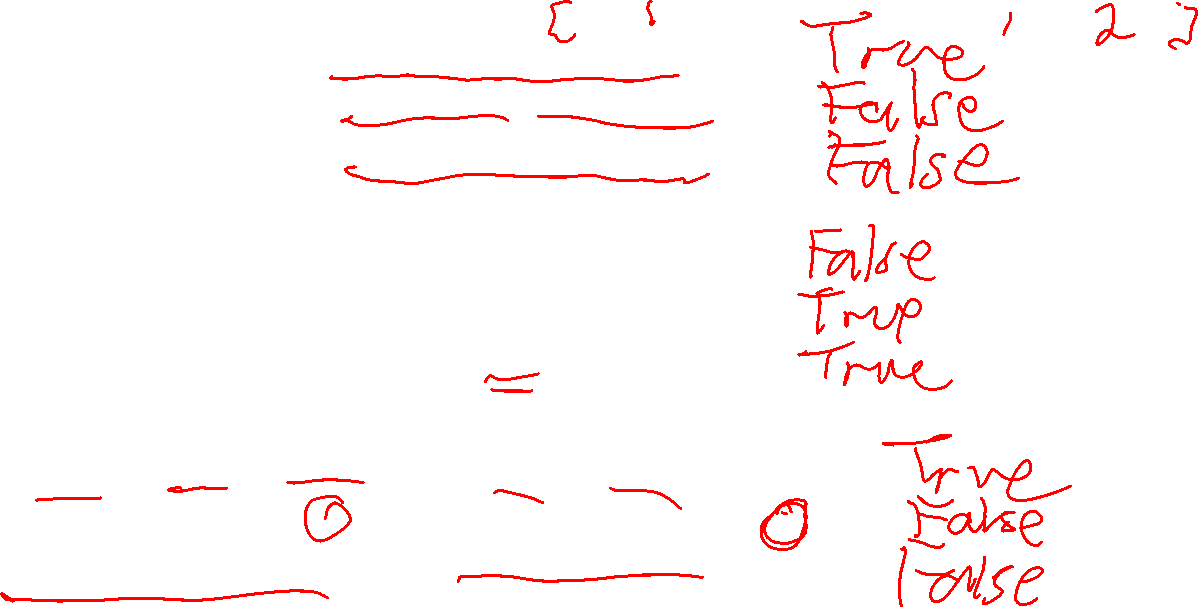 [ ' True ' 2 ]
False
False
False
True
True
=
True
False
False